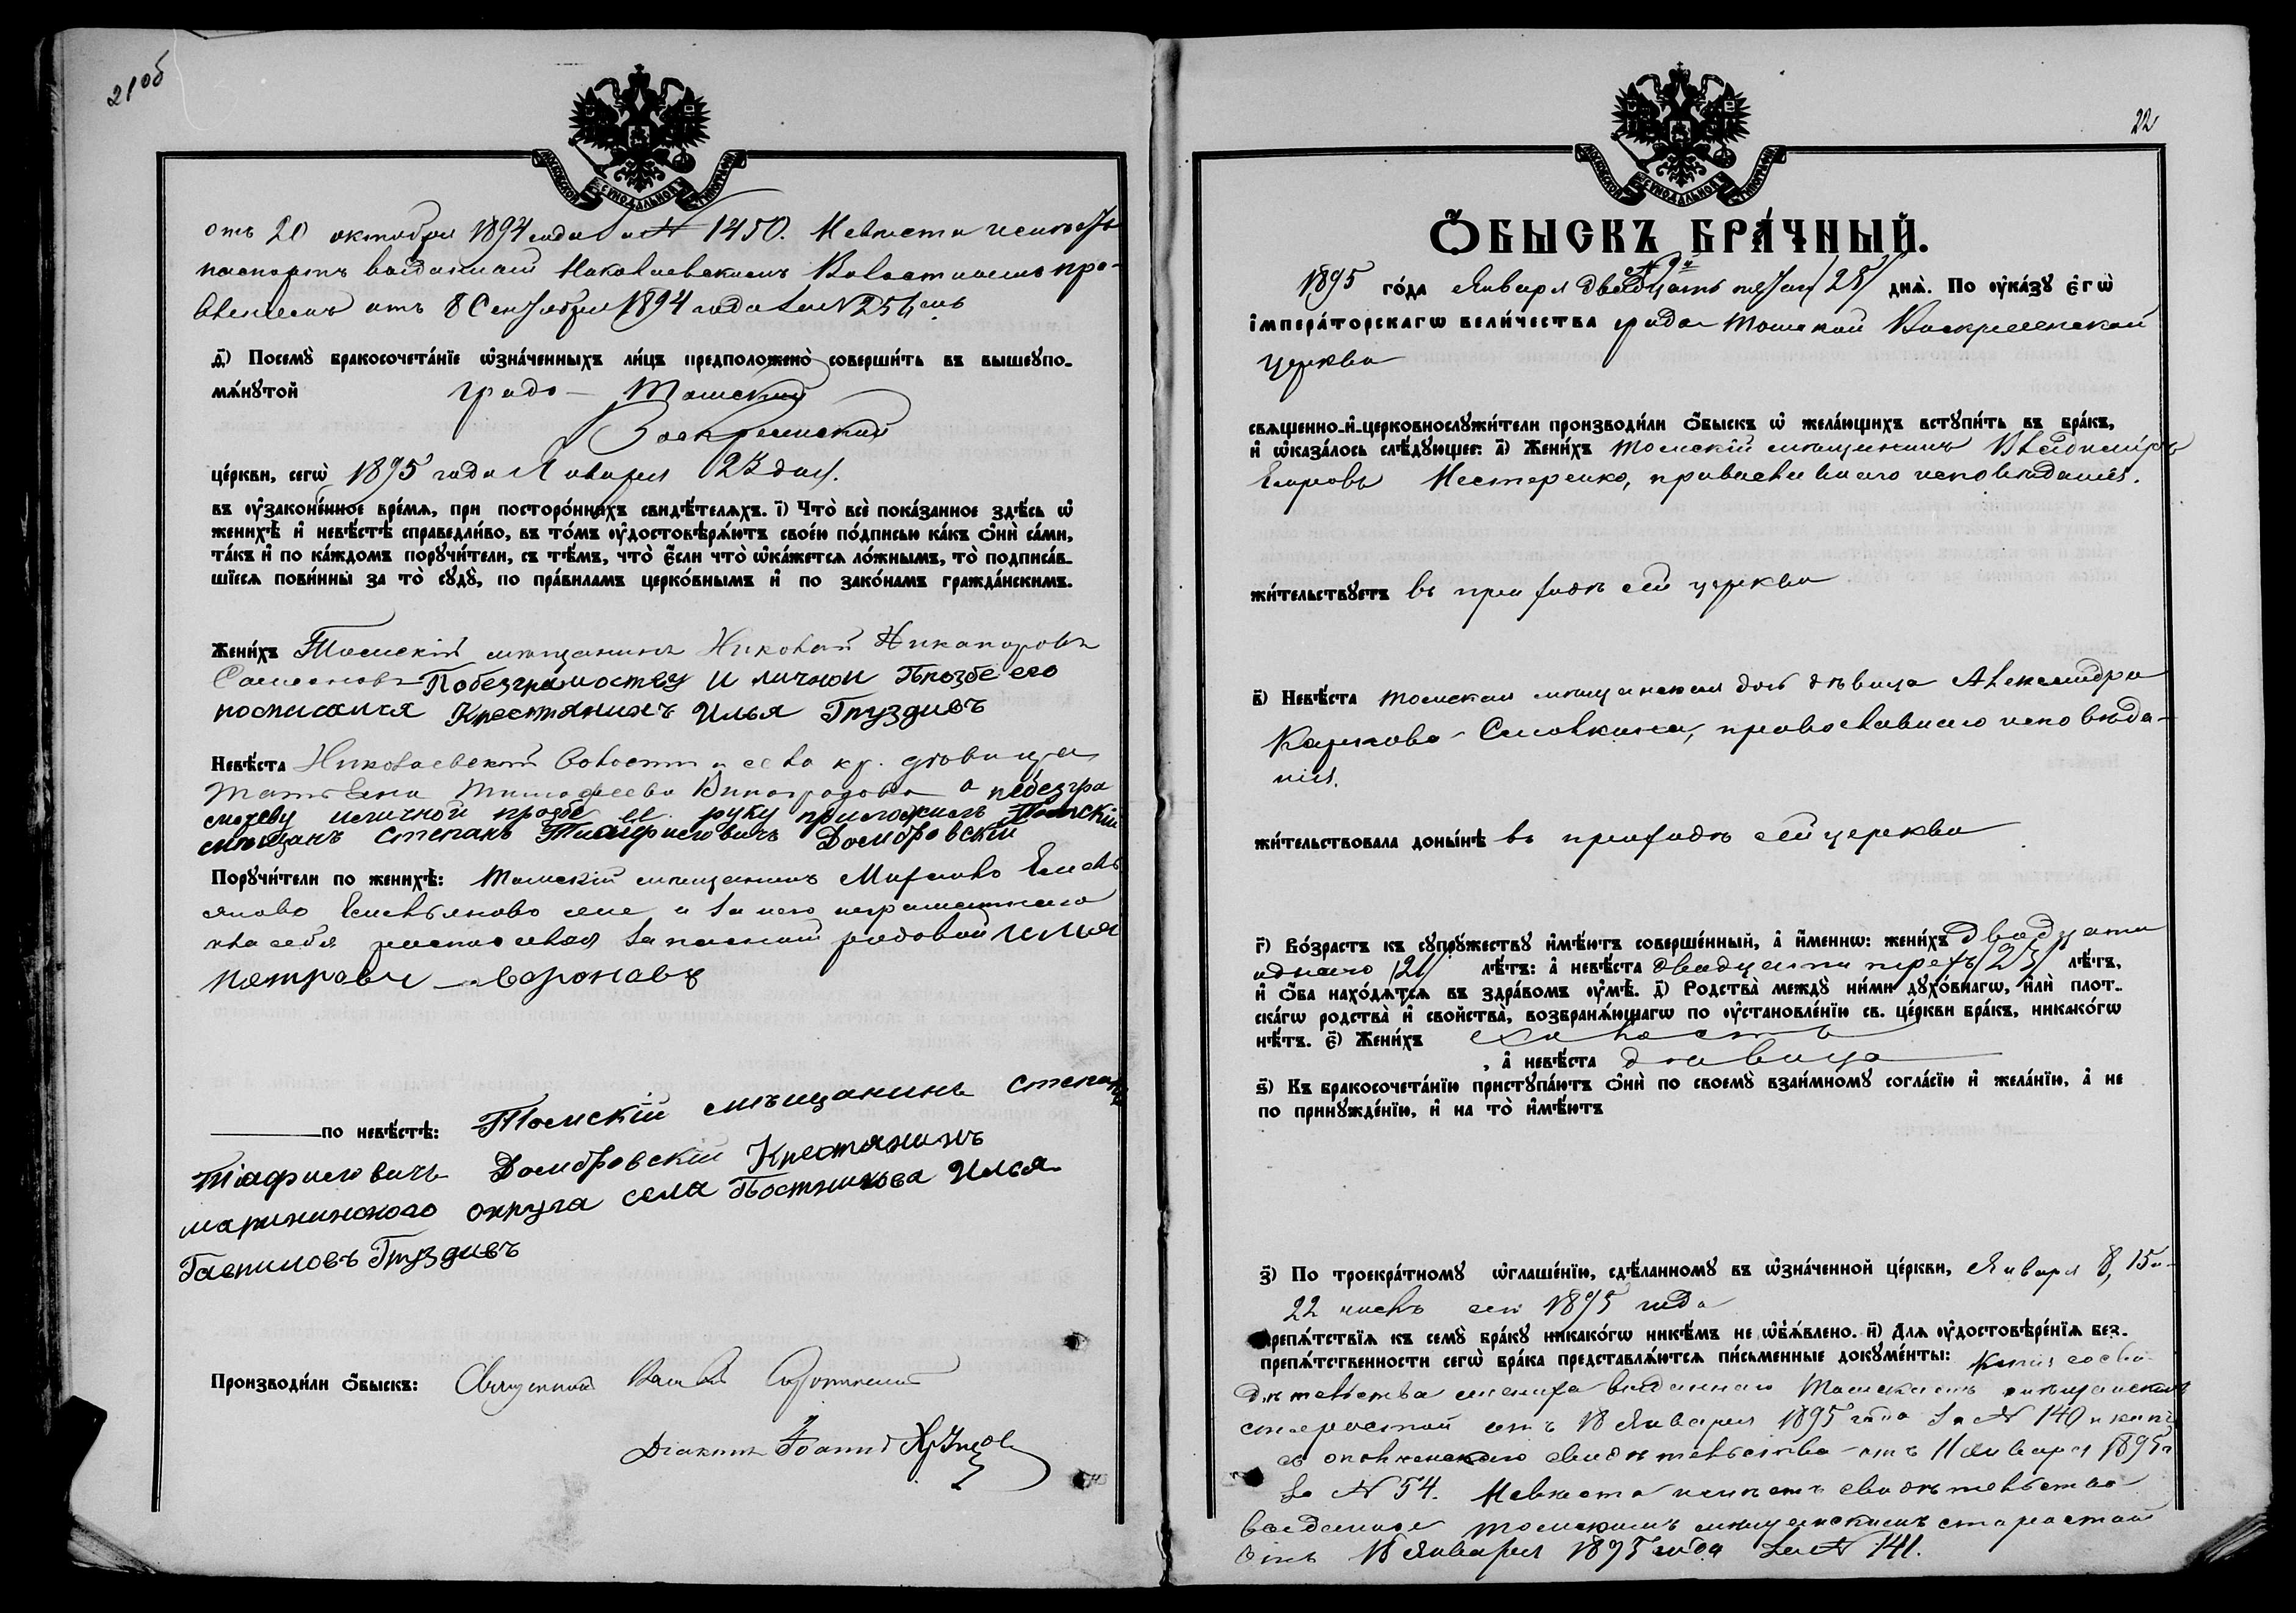 21об
МОСКОВСКОЙ СѴНОДАЛЬНОЙ ТИПОГРАФІИ
отъ 20 октября 1894 года за № 1450. Невѣста имѣетъ
паспортъ выданный Николаевскимъ Волостнымъ пра-
вленіемъ отъ 8 Сентября 1894 года за № 254
д҃) Посемꙋ̀ бракосочета́нїе ѡ҆зна́ченныхъ ли́цъ предположено̀ соверши́ть въ вышеꙋпо-
мѧ́нꙋтой градо-Томской
Воскресенской
це́ркви, сегѡ̀ 1895 года Января 23 дня.
въ ᲂу҆зако́ненное вре́мѧ, при посторо́ннихъ свидѣ́телѧхъ. і҃) Что̀ всѐ пока́занное здѣ́сь ѡ҆
женихѣ̀ и҆ невѣ́стѣ справедли́во, въ то́мъ ᲂу҆достовѣрѧ́ютъ свое́ю по́дписью ка́къ ѻ҆нѝ са́ми,
та́къ и҆ по ка́ждомъ порꙋчи́тели, съ тѣ́мъ, что̀ є҆́сли что̀ ѡ҆ка́жетсѧ ло́жнымъ, то̀ подписа́в-
шїесѧ пови́нны за то̀ сꙋдꙋ̀, по пра́виламъ церко́внымъ и҆ по зако́намъ гражда́нскимъ.
Жени́хъ Томскій мѣщанинъ Николай Никаноровъ
Самсоновъ Побезграмоству и личной Прозбе его
росписался Крестянинъ Илья Груздивъ
Невѣ́ста Николаевской волости и села кр. дѣвица
Татьяна Тимофеева Виноградова а пебезгра
мотеву иличной прозбе ее руку приложилъ Томскій
мѣщанъ Степанъ Домбровскій
Порꙋчи́тели по женихѣ̀: Томскій мѣщанинъ
и за него неграмотнаго
росписался запасный рядовой Илья
Петровъ Вароновъ
по невѣ́стѣ: Томскій мѣщанинъ Степанъ
Домбровскій Крестянинъ
мариинского округа села Постникова Илья
Гавриловъ Груздивъ
Производи́ли ѻ҆́быскъ: Священникъ
Діаконъ Іоаннъ
22
МОСКОВСКОЙ СѴНОДАЛЬНОЙ ТИПОГРАФІИ
Ѻ҆БЫСКЪ БРА́ЧНЫЙ.
1895 го́да Января двадцать пятаго /25/ днѧ̀. По ᲂу҆ка́зꙋ є҆гѡ̀
і҆мпера́торскагѡ вели́чества градо-Томской Воскресенской
церкви
свѧщенно-и҆-церковнослꙋжи́тели производи́ли ѻ҆́быскъ ѡ҆ жела́ющихъ встꙋпи́ть въ бра́къ,
и҆ ѡ҆каза́лось слѣ́дꙋющее: а҃) Жени́хъ томскій мѣщанинъ Владиміръ
Егоровъ Нестеренко, православнаго исповѣданія.
жи́тельствꙋетъ въ приходѣ сей церкви
в҃) Невѣ́ста томская мѣщанская дочь дѣвица Александра
Карпова Смолкина, православнаго исповѣда-
нія.
жи́тельствовала доны́нѣ въ приходѣ сей церкви
г҃) Во́зрастъ къ сꙋпрꙋ́жествꙋ и҆мѣ́ютъ соверше́нный, а҆ и҆́менню: жени́хъ двадцати
одного /21/ лѣ́тъ: а҆ невѣ́ста двадцати трехъ /23/ лѣ́тъ,
и҆ ѻ҆́ба нахо́дѧтсѧ въ здра́вомъ ᲂу҆мѣ̀. д҃) Родства̀ междꙋ̀ ни́ми дꙋхо́внагѡ, и҆лѝ плот-
ска́гѡ родства̀ и҆ сво́йства̀, возбранѧ́ющагѡ по ᲂу҆становле́нїю св. це́ркви бра́къ, никако́гѡ
нѣ́тъ. є҃) Жени́хъ холостъ
, а҆ невѣ́ста дѣвица
ѕ҃) Къ бракосочета́нїю пристꙋпа́ютъ ѻ҆нѝ по своемꙋ̀ взаи́мномꙋ согла́сїю и҆ жела́нїю, а҆ не
по принꙋжде́нїю, и҆ на то̀ и҆мѣ́ютъ
з҃) По троекра́тномꙋ ѡ҆глаше́нїю, сдѣ́ланномꙋ въ ѡ҆зна́ченной це́ркви, Января 8, 15 и
22 числъ сего 1895 года
препѧ́тствїѧ къ семꙋ̀ бра́кꙋ никако́гѡ никѣ́мъ не ѡ҆б̾ѧ́влено. и҃) Длѧ ᲂу҆достовѣре́нїѧ без-
препѧ́тственности сегѡ̀ бра́ка представлѧ́ютсѧ пи́сьменные докꙋме́нты: Копія со сви-
дѣтельства жениха выданнаго Томскимъ мѣщанскимъ
старостой отъ 18 Января 1895 года за № 140 и копія
съ свидѣтельства отъ 11 января 1895 г
за № 54. Невѣста имѣетъ свидѣтельство
выданное томскимъ мѣщанскимъ старостой
отъ 18 Января 1895 года за № 141.